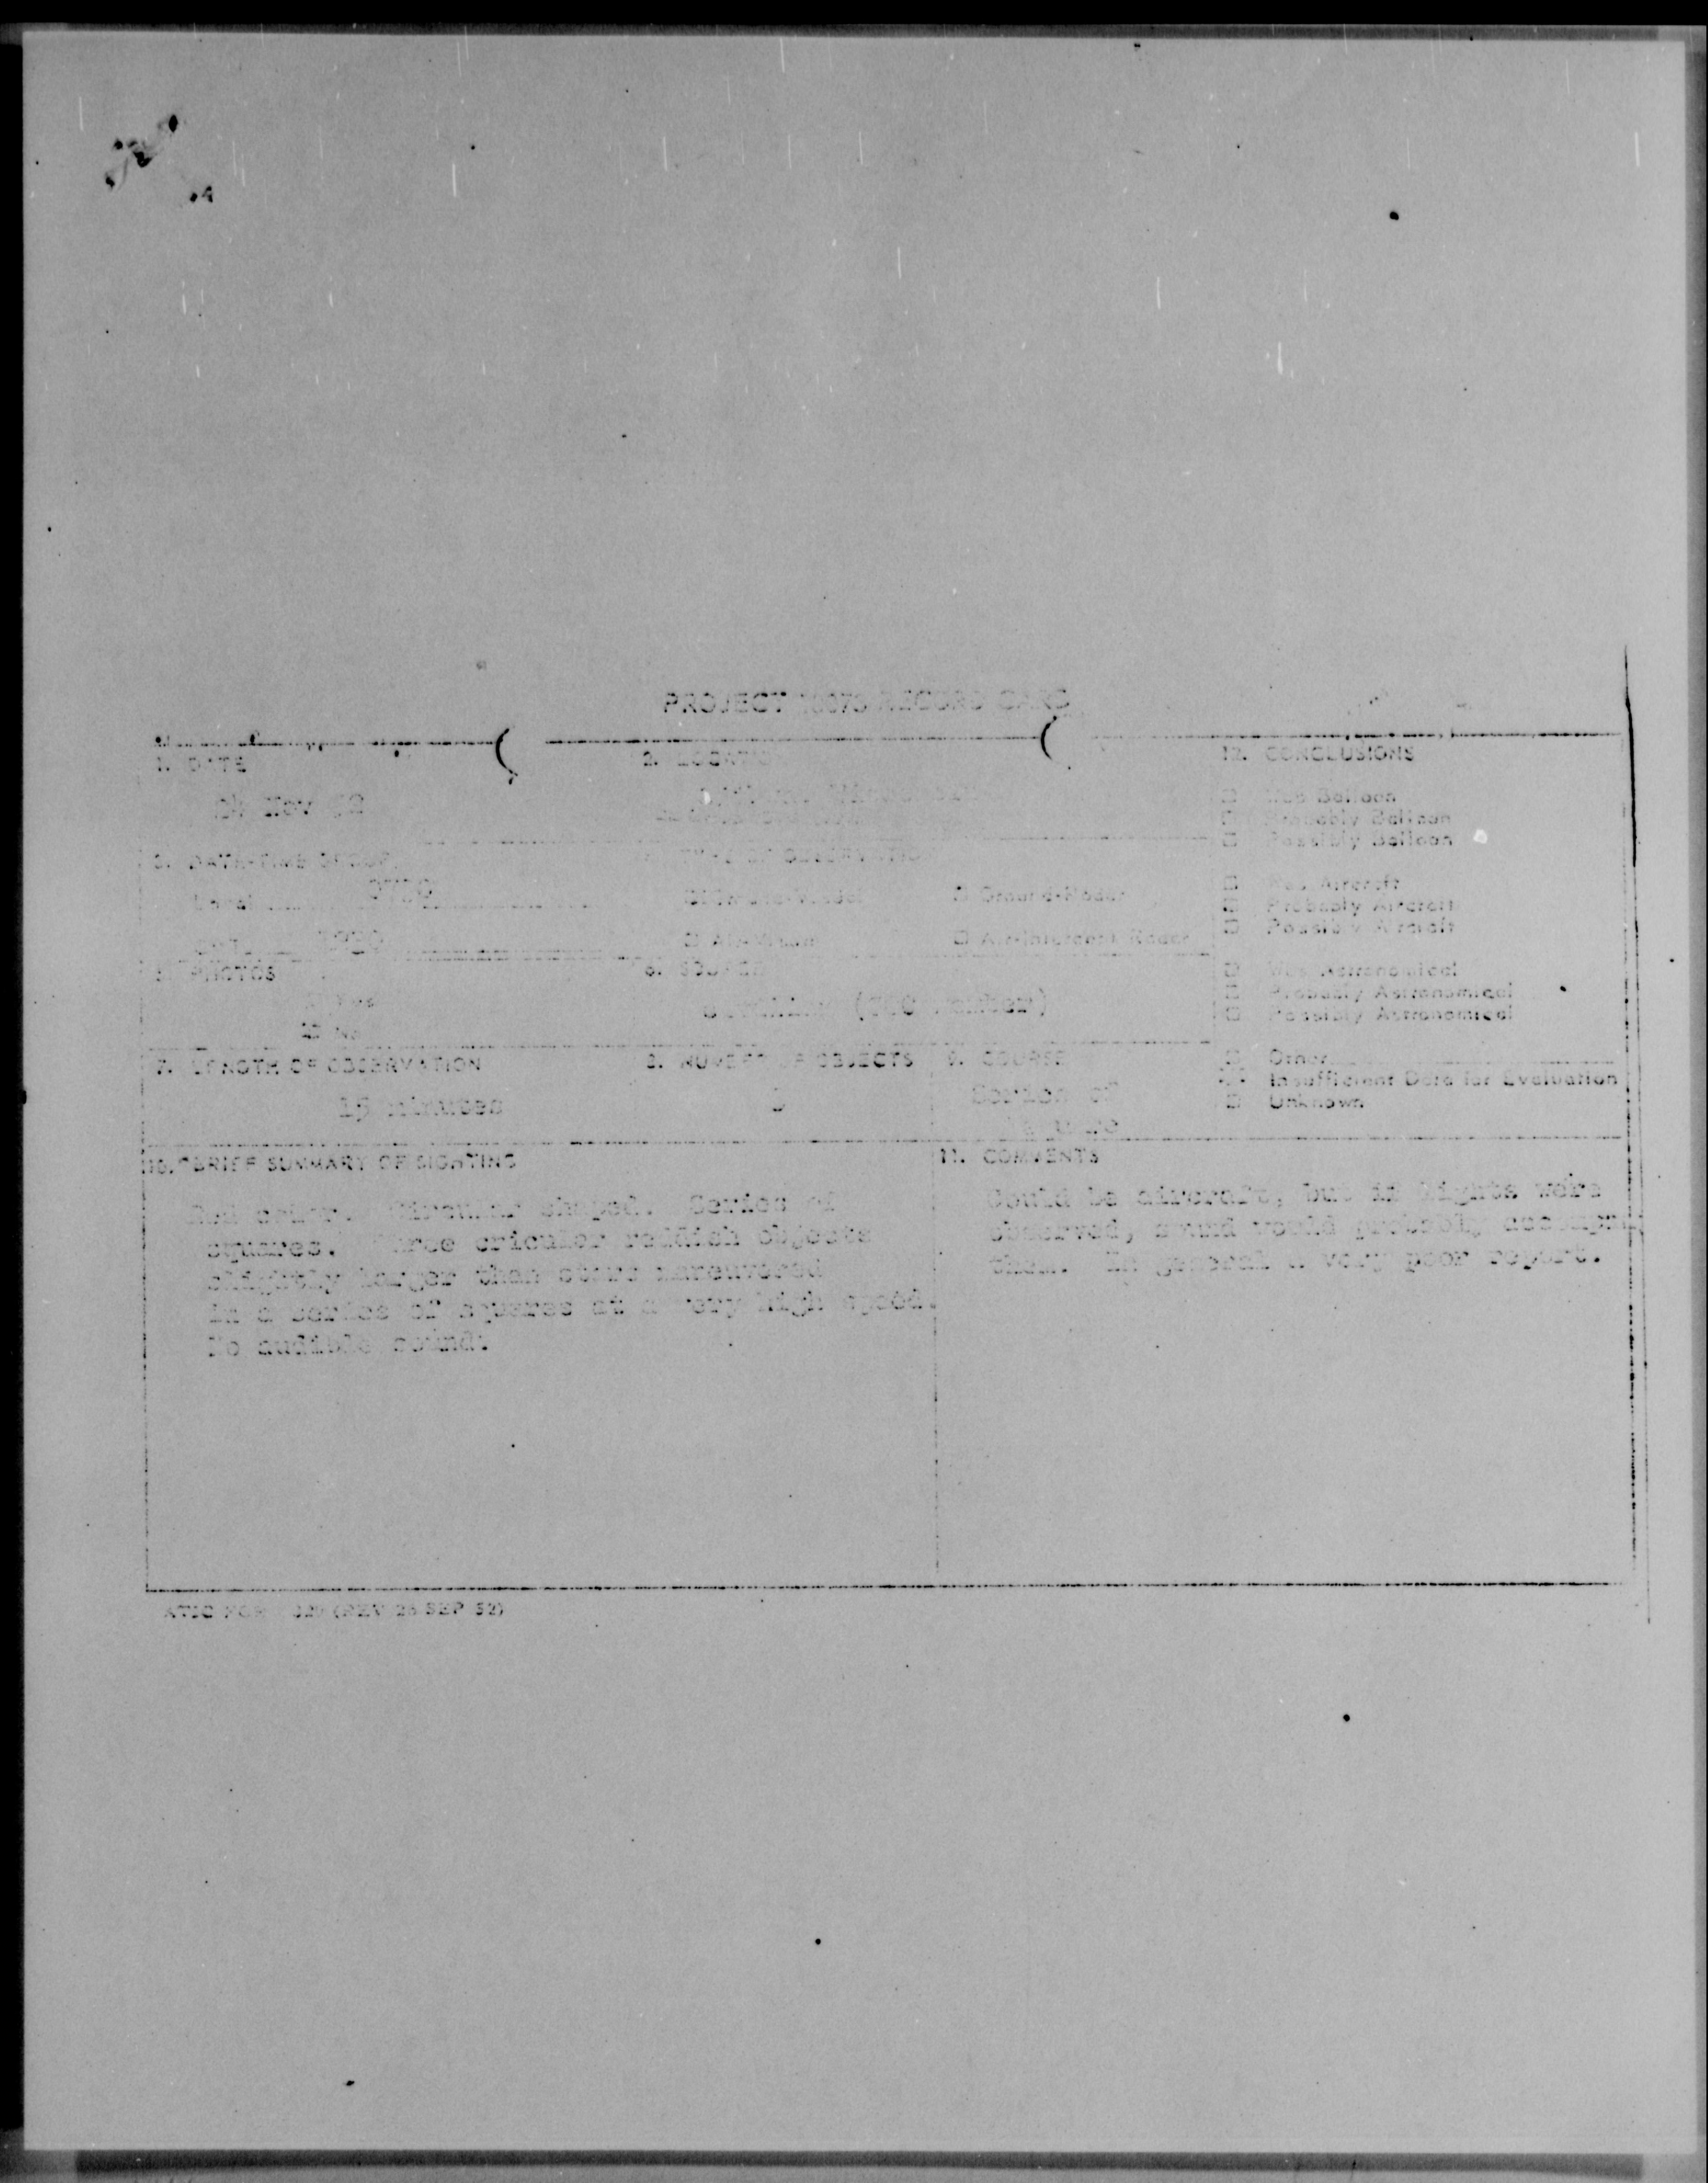 PROJECT 10073 RECORD CARD
1. DATE
2. LOCATION
12. CONCLUSIONS
24 Nov 52
□ Was Balloon
□ Probably Balloon
□ Possibly Balloon
3. DATE-TIME GROUP
4. TYPE OF OBSERVATION
Local
□ Ground-Visual □ Ground-Radar
□ Was Aircraft
□ Probably Aircraft
□ Possibly Aircraft
GMT
□ Air-Visual □ Air-Intercept Radar
5. PHOTOS
□ Yes
□ No
6. SOURCE
civilian
□ Was Astronomical
□ Probably Astronomical
□ Possibly Astronomical
7. LENGTH OF OBSERVATION
15 minutes
8. NUMBER OF OBJECTS
3
9. COURSE
Series of
□ Other
Insufficient Data for Evaluation
□ Unknown
10. BRIEF SUMMARY OF SIGHTING
Red color. Circular shaped. Series of
squares. Three cricular reddish objects
slightly larger than stars manuvered
in a series of squares at a very high speed.
No audible sound.
11. COMMENTS
Could be aircraft, but if lights were
observed, sound would probably accompny
them. In general a very poor report.
ATIC FORM 329 (REV 26 SEP 52)